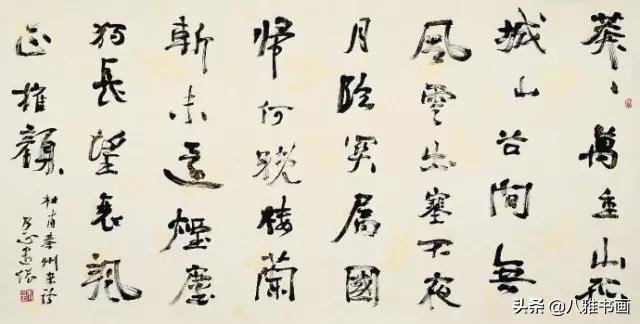 莽〻萬重山孤
城山谷間無
風雲出塞不夜
月臨關屬國
歸何晚樓蘭
斬未還煙塵
獨長望衰颯
正摧顏
杜甫秦州雜詩
头条 @八雅书画